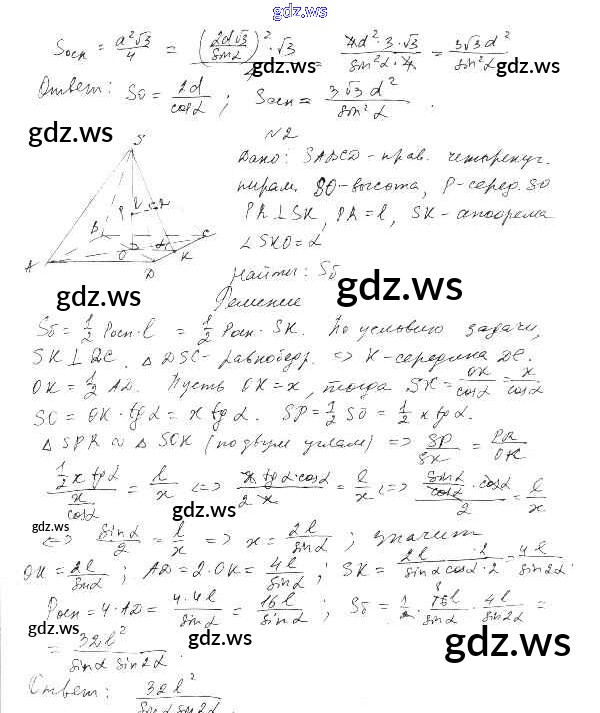 gdz.ws
Sосн = a²√3/4 = (2d√3/sinα)²·√3/4 = 4d²·3·√3/sin²α·4 = 3√3d²/sin²α
Ответ: Sб = 2d/cosα ; Sосн = 3√3d²/sin²α .
gdz.ws
gdz.ws
gdz.ws
N2
Дано: SABCD - прав. четырехуг.
пирам. SO - высота, P - серед. SO
PR ⊥ SK, PR = l, SK - апофема
∠SKO = α
Найти: Sб
S
P
R
B
C
O
K
A
D
gdz.ws
gdz.ws
Решение
Sб = 1/2 Pосн·l = 1/2 Pосн·SK. По условию задачи,
SK ⊥ DC. △DSC - равнобедр. => K - середина DC.
OK = 1/2 AD. Пусть OK = x, тогда SK = OK/cosα = x/cosα
SO = OK·tgα = x tgα. SP = 1/2 SO = 1/2 x tgα.
△SPR ~ △SOK (по двум углам) => SP/SK = PR/OK
1/2 x tgα / x/cosα = l/x <=> x tgα·cosα/2x = l/x <=> sinα/cosα·cosα/2 = l/x
gdz.ws
gdz.ws
<=> sinα/2 = l/x => x = 2l/sinα ; значит
OK = 2l/sinα ; AD = 2·OK = 4l/sinα ; SK = 2l·2/sinα cosα·2 = 4l/sin2α.
Pосн = 4·AD = 4·4l/sinα = 16l/sinα ; Sб = 1/2·16l/sinα·4l/sin2α =
gdz.ws
gdz.ws
gdz.ws
= 32l²/sinα sin2α .
Ответ: 32l²/sinα sin2α .
gdz.ws
gdz.ws
gdz.ws